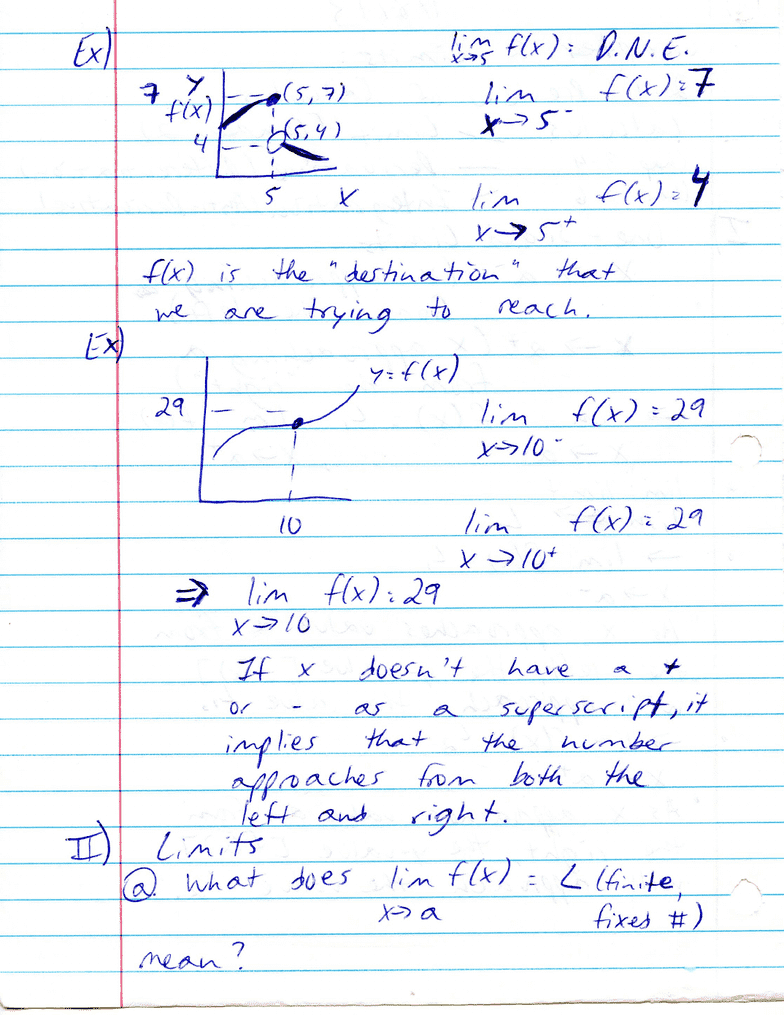 Ex)
lim f(x) = D.N.E.
x→5
7 y (5, 7)
f(x)
4 (5, 4)
5 x
lim f(x) = 7
x→5⁻
lim f(x) = 4
x→5⁺
f(x) is the "destination" that
we are trying to reach.
Ex)
y=f(x)
29
10
lim f(x) = 29
x→10⁻
lim f(x) = 29
x→10⁺
⇒ lim f(x) = 29
x→10
If x doesn't have a +
or - as a superscript, it
implies that the number
approaches from both the
left and right.
II) Limits
(a) What does lim f(x) = L (finite,
x→a fixes #)
mean?